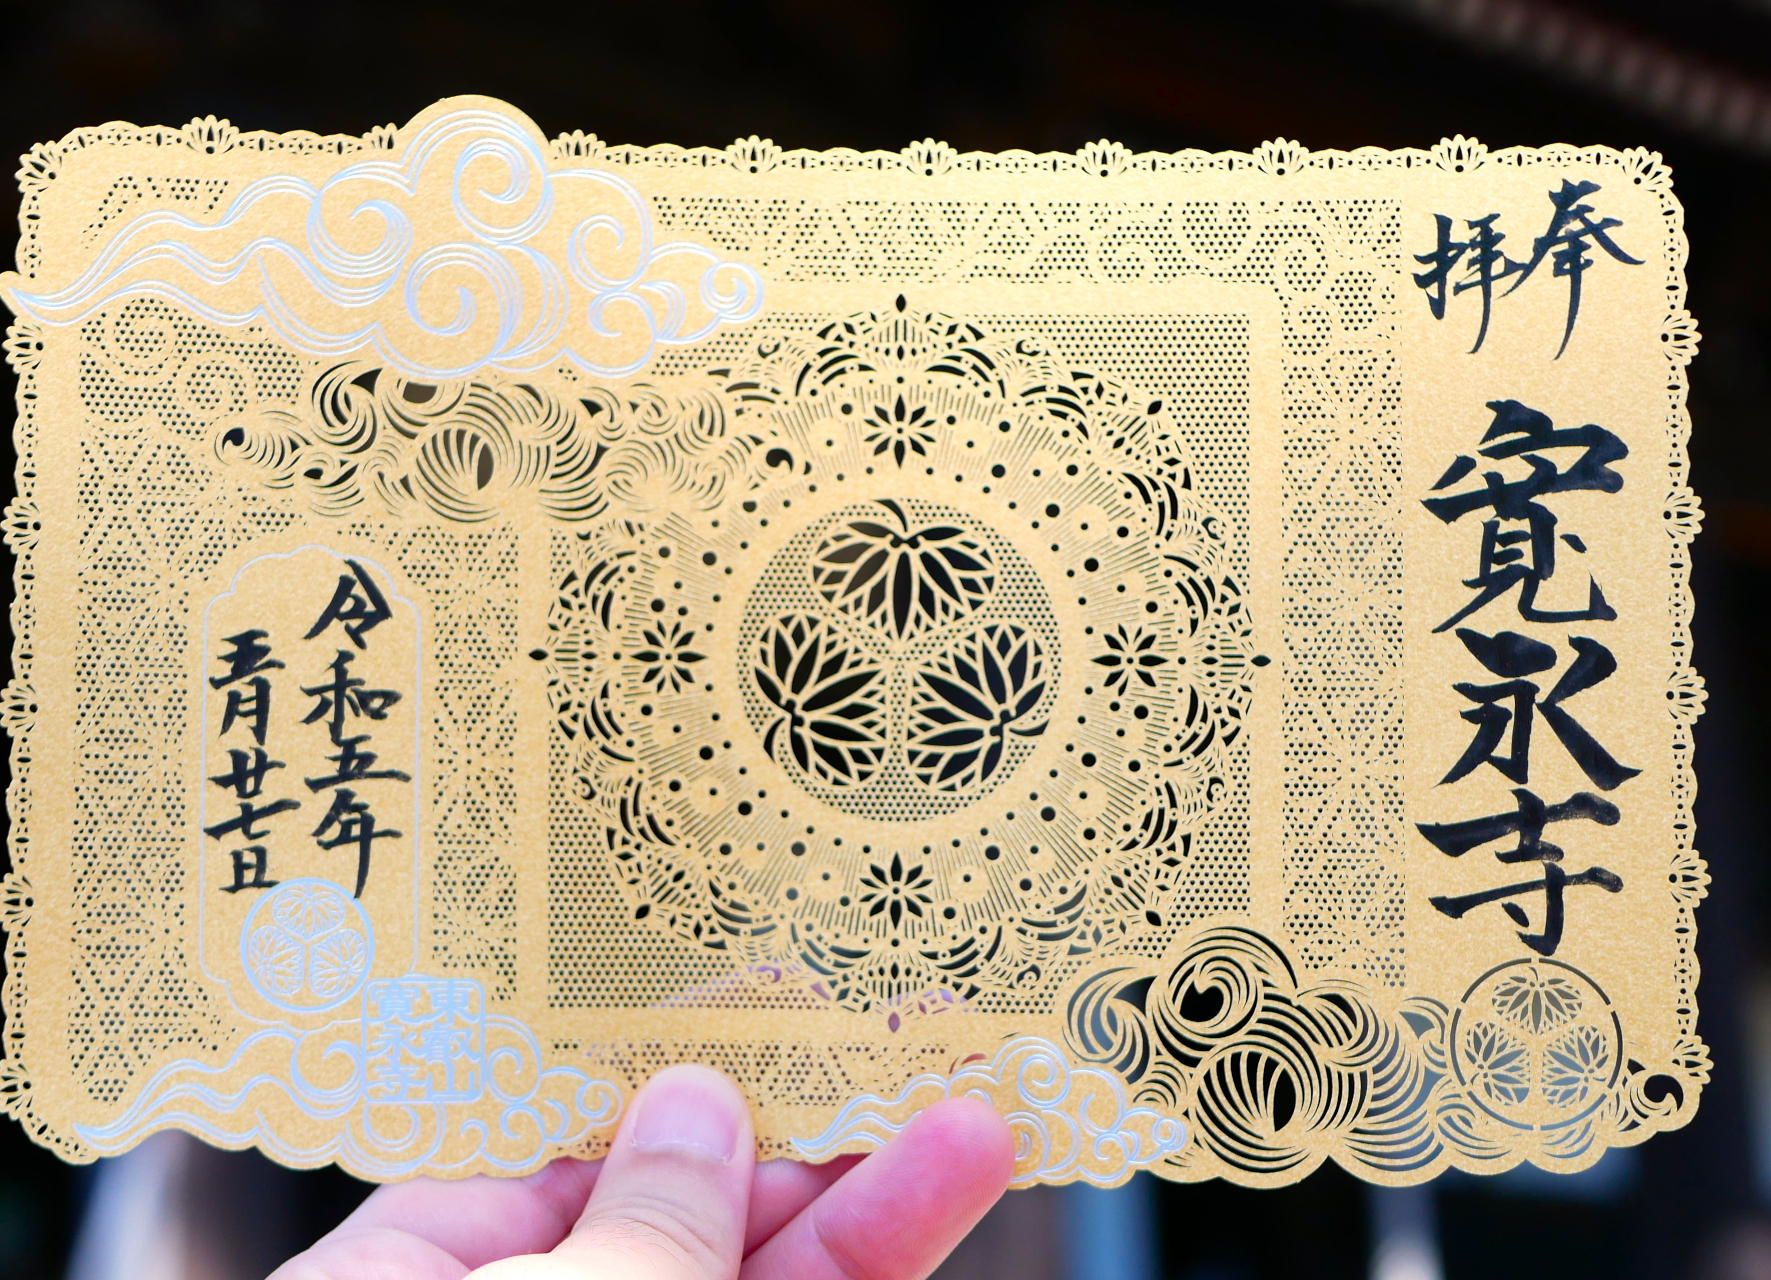 奉拝
寛永寺
令和五年
五月廿七日
東叡山
寛永寺